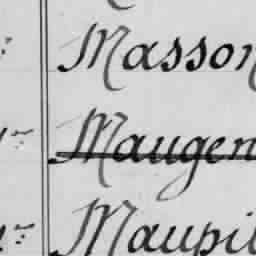 Masson
Maugen
Maupil